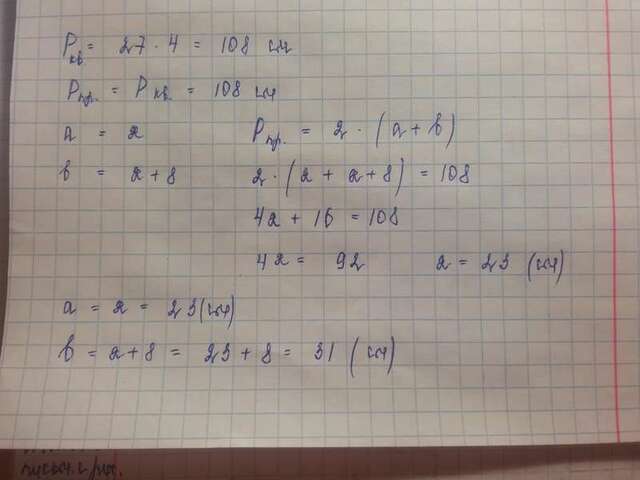 Pкв = 27 · 4 = 108 см
Pпр. = Pкв. = 108 см
a = x Pпр. = 2 · (a + b)
b = x + 8 2 · (x + x + 8) = 108
4x + 16 = 108
4x = 92 x = 23 (см)
a = x = 23 (см)
b = x + 8 = 23 + 8 = 31 (см)